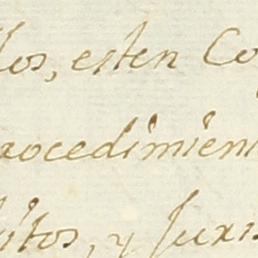 los, esten Co
rocedimien
itos, y Juris